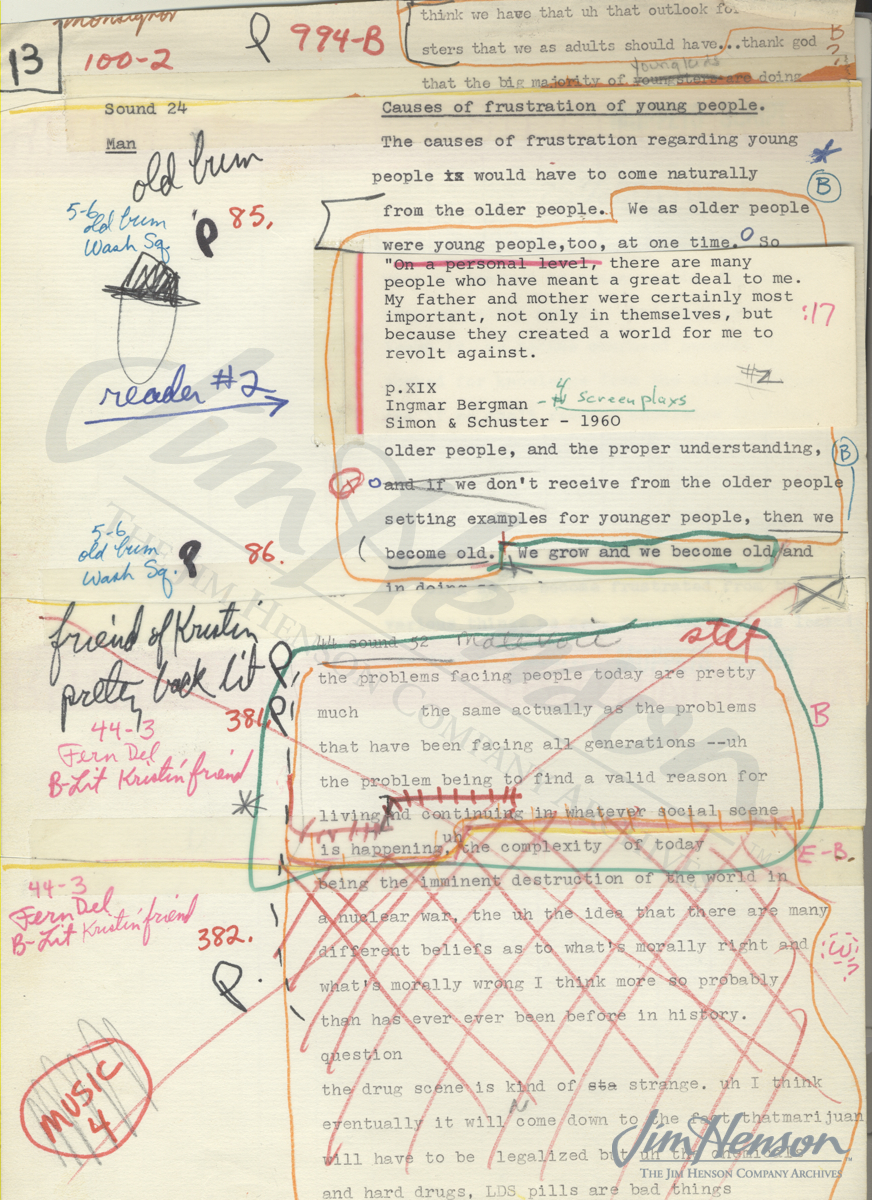 13
monsignor
100-2
P
994-B
think we have that uh that outlook fo
sters that we as adults should have...thank god
B
?
young kids
that the big majority of youngsters are doing
Sound 24
Man
Causes of frustration of young people.
The causes of frustration regarding young
people is would have to come naturally
B
from the older people. We as older people
were young people,too, at one time. So
old bum
5-6
old bum
Wash Sq.
P
85.
"On a personal level, there are many
people who have meant a great deal to me.
My father and mother were certainly most
important, not only in themselves, but
because they created a world for me to
revolt against.
:17
#2
p.XIX
Ingmar Bergman - 4 screenplays
Simon & Schuster - 1960
reader #2
older people, and the proper understanding,
B
and if we don't receive from the older people
setting examples for younger people, then we
become old. We grow and we become old and
in doing
5-6
old bum
Wash Sq.
P
86.
friend of Kristin
pretty back lit
44 sound 52
stet
P.
the problems facing people today are pretty
much the same actually as the problems
that have been facing all generations --uh
the problem being to find a valid reason for
living and continuing in whatever social scene
is happening, uh the complexity of today
B
44-3
Fern Del
B-Lit Kristin friend
381.
P
E-B.
being the imminent destruction of the world in
a nuclear war, the uh the idea that there are many
different beliefs as to what's morally right and
what's morally wrong I think more so probably
than has ever ever been before in history.
question
the drug scene is kind of sta strange. uh I think
eventually it will come down to the fact thatmarijuan
will have to be legalized but uh the chemicals
and hard drugs, LDS pills are bad things
44-3
Fern Del
B-Lit Kristin friend
382.
P.
W
?
MUSIC
4
Jim Henson
THE JIM HENSON COMPANY ARCHIVES
Jim Henson
THE JIM HENSON COMPANY ARCHIVES